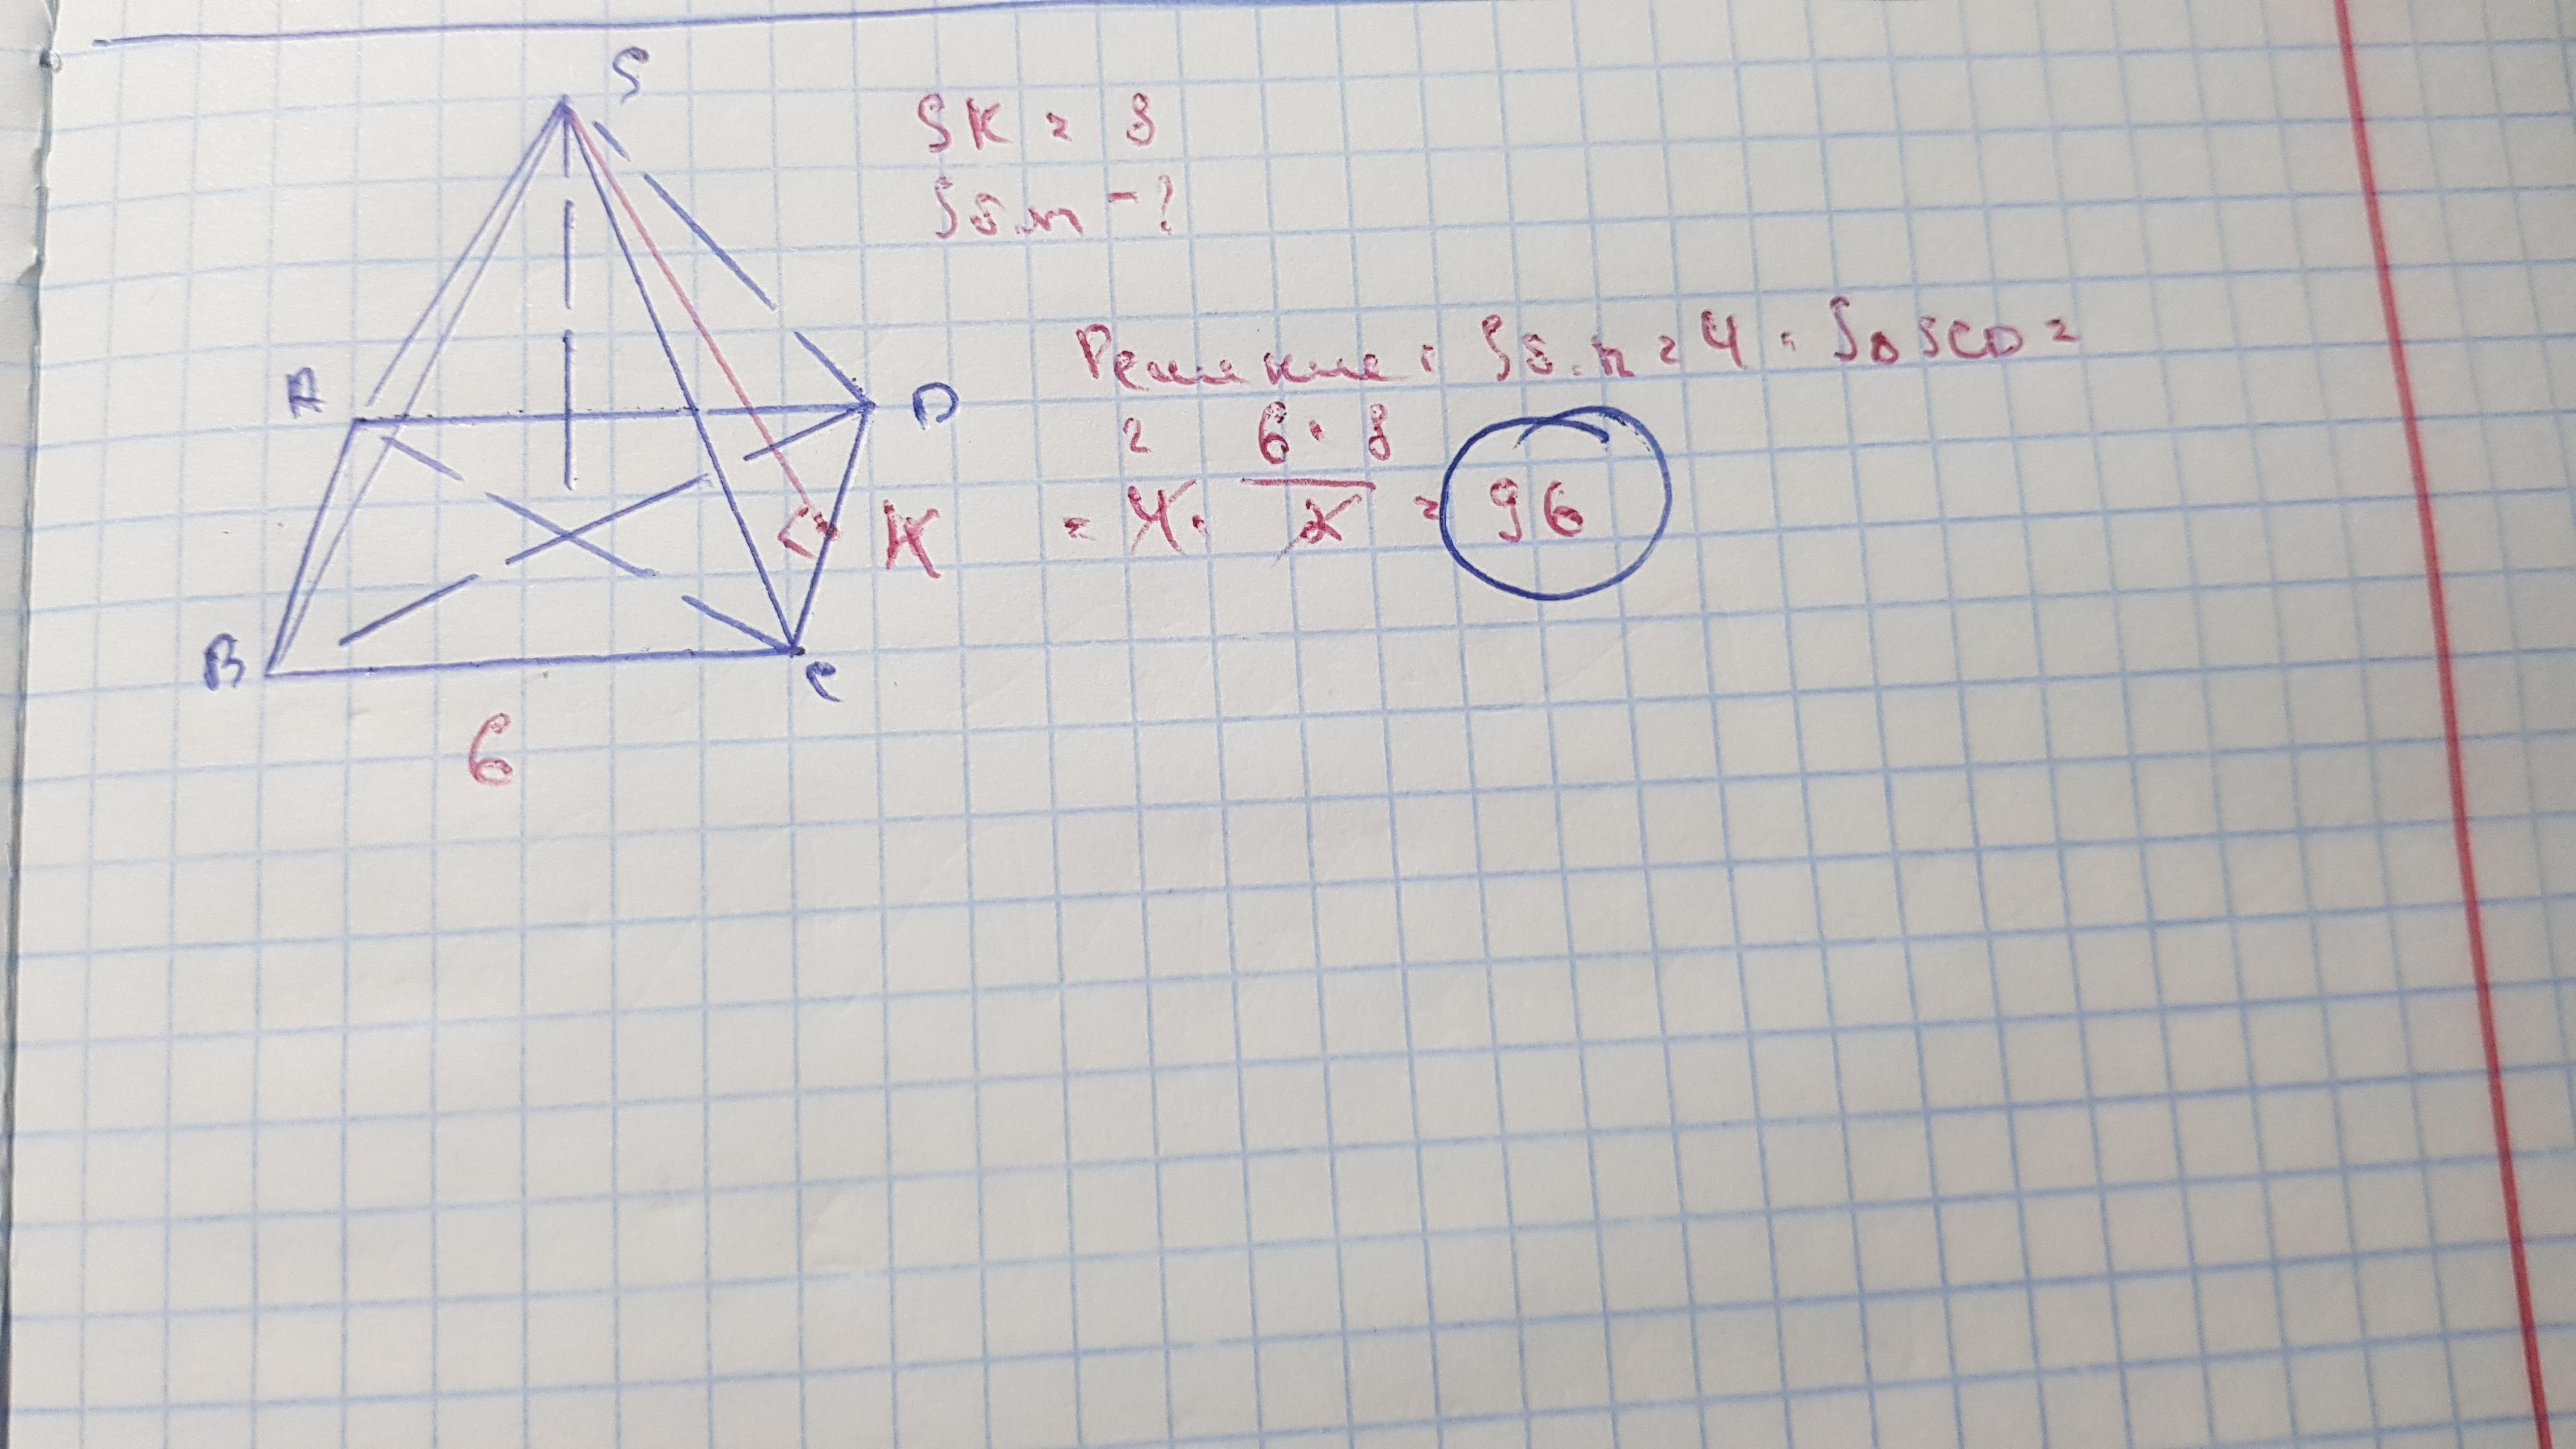 S
SK = 8
Sб.п - ?
A
D
Решение: Sб.п = 4 · S△SCD =
= 6 · 8
= 4 · 2 = 96
K
B
C
6